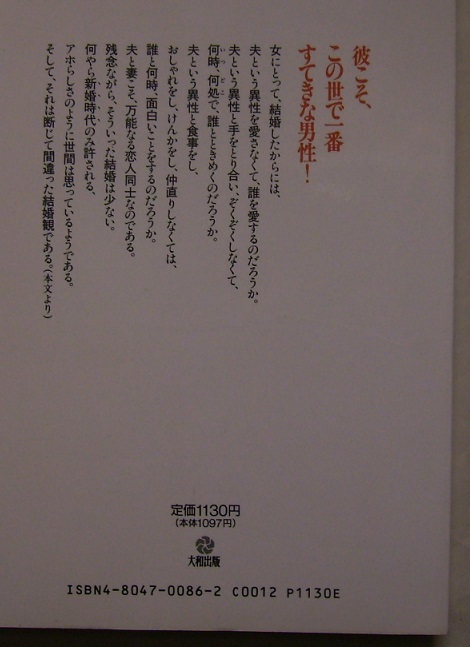 彼こそ、
この世で一番
すてきな男性！
女にとって、結婚したからには、
夫という異性を愛さなくて、誰を愛するのだろうか。
夫という異性と手をとり合い、ぞくぞくしなくて、
何時、何処で、誰とときめくのだろうか。
夫という異性と食事をし、
おしゃれをし、けんかをし、仲直りしなくては、
誰と何時、面白いことをするのだろうか。
夫と妻こそ、万能なる恋人同士なのである。
残念ながら、そういった結婚は少ない。
何やら新婚時代のみ許される、
アホらしさのように世間は思っているようである。
そして、それは断じて間違った結婚観である。（本文より）
定価1130円
（本体1097円）
大和出版
ISBN4-8047-0086-2 C0012 P1130E